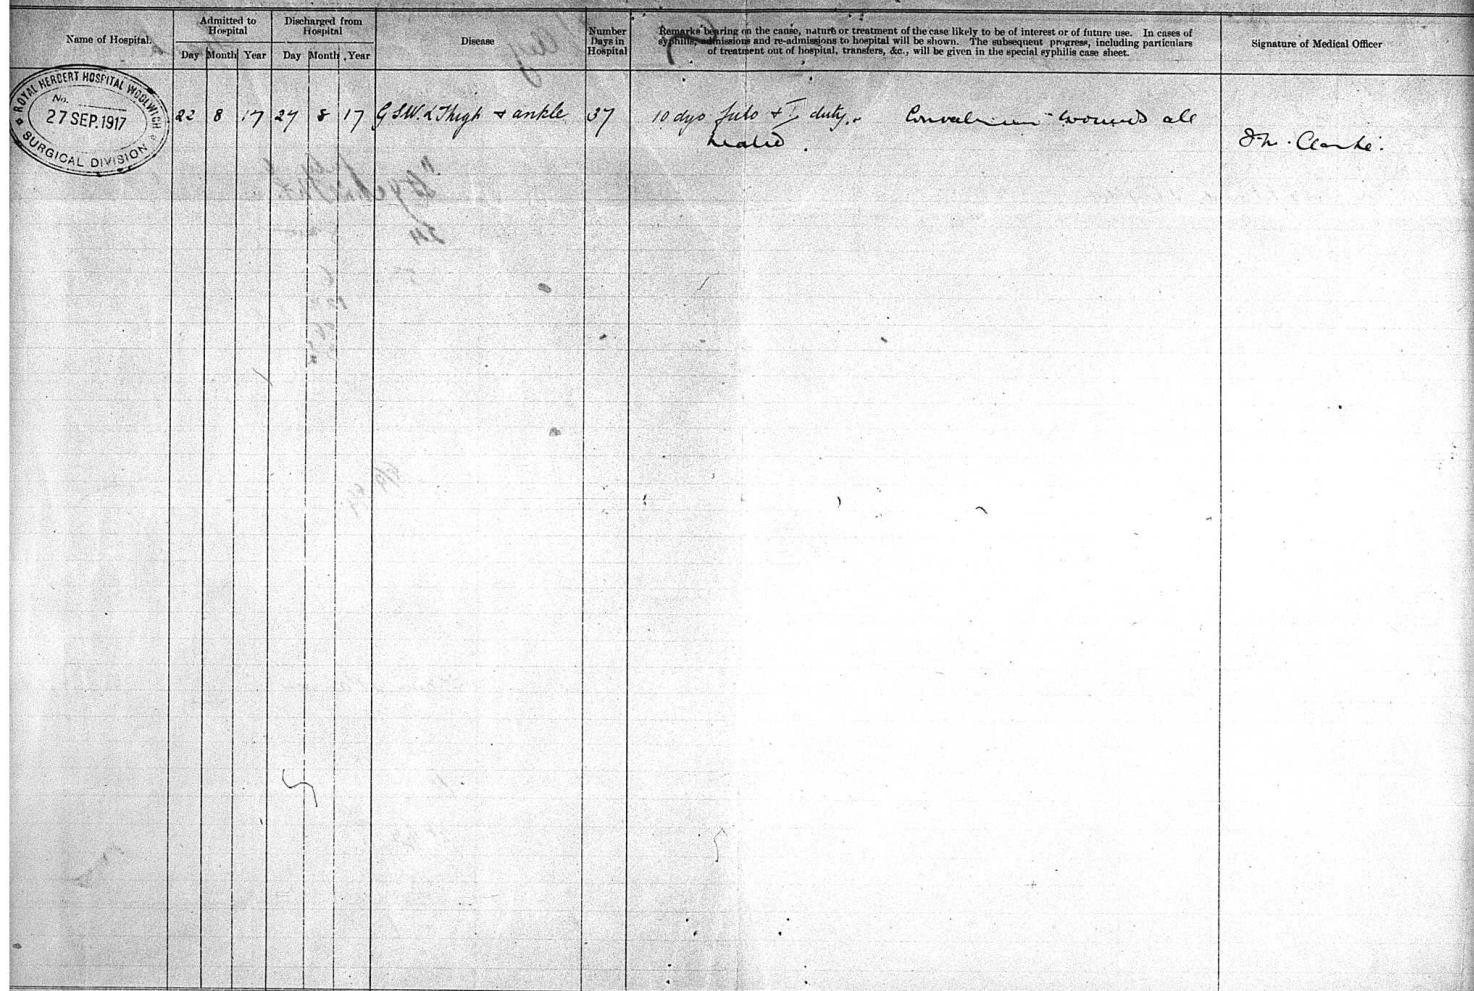 Name of Hospital.
Admitted to Hospital
Day Month Year
Discharged from Hospital
Day Month Year
Disease
Number Days in Hospital
Remarks bearing on the cause, nature or treatment of the case likely to be of interest or of future use. In cases of
syphilis, admissions and re-admissions to hospital will be shown. The subsequent progress, including particulars
of treatment out of hospital, transfers, &c., will be given in the special syphilis case sheet.
Signature of Medical Officer
ROYAL HERBERT HOSPITAL WOOLWICH
No.
27 SEP. 1917
SURGICAL DIVISION
22 8 17 27 8 17 G.S.W. L Thigh + ankle 37 10 dys furlo + I duty. wounds all
healed.
Clarke.